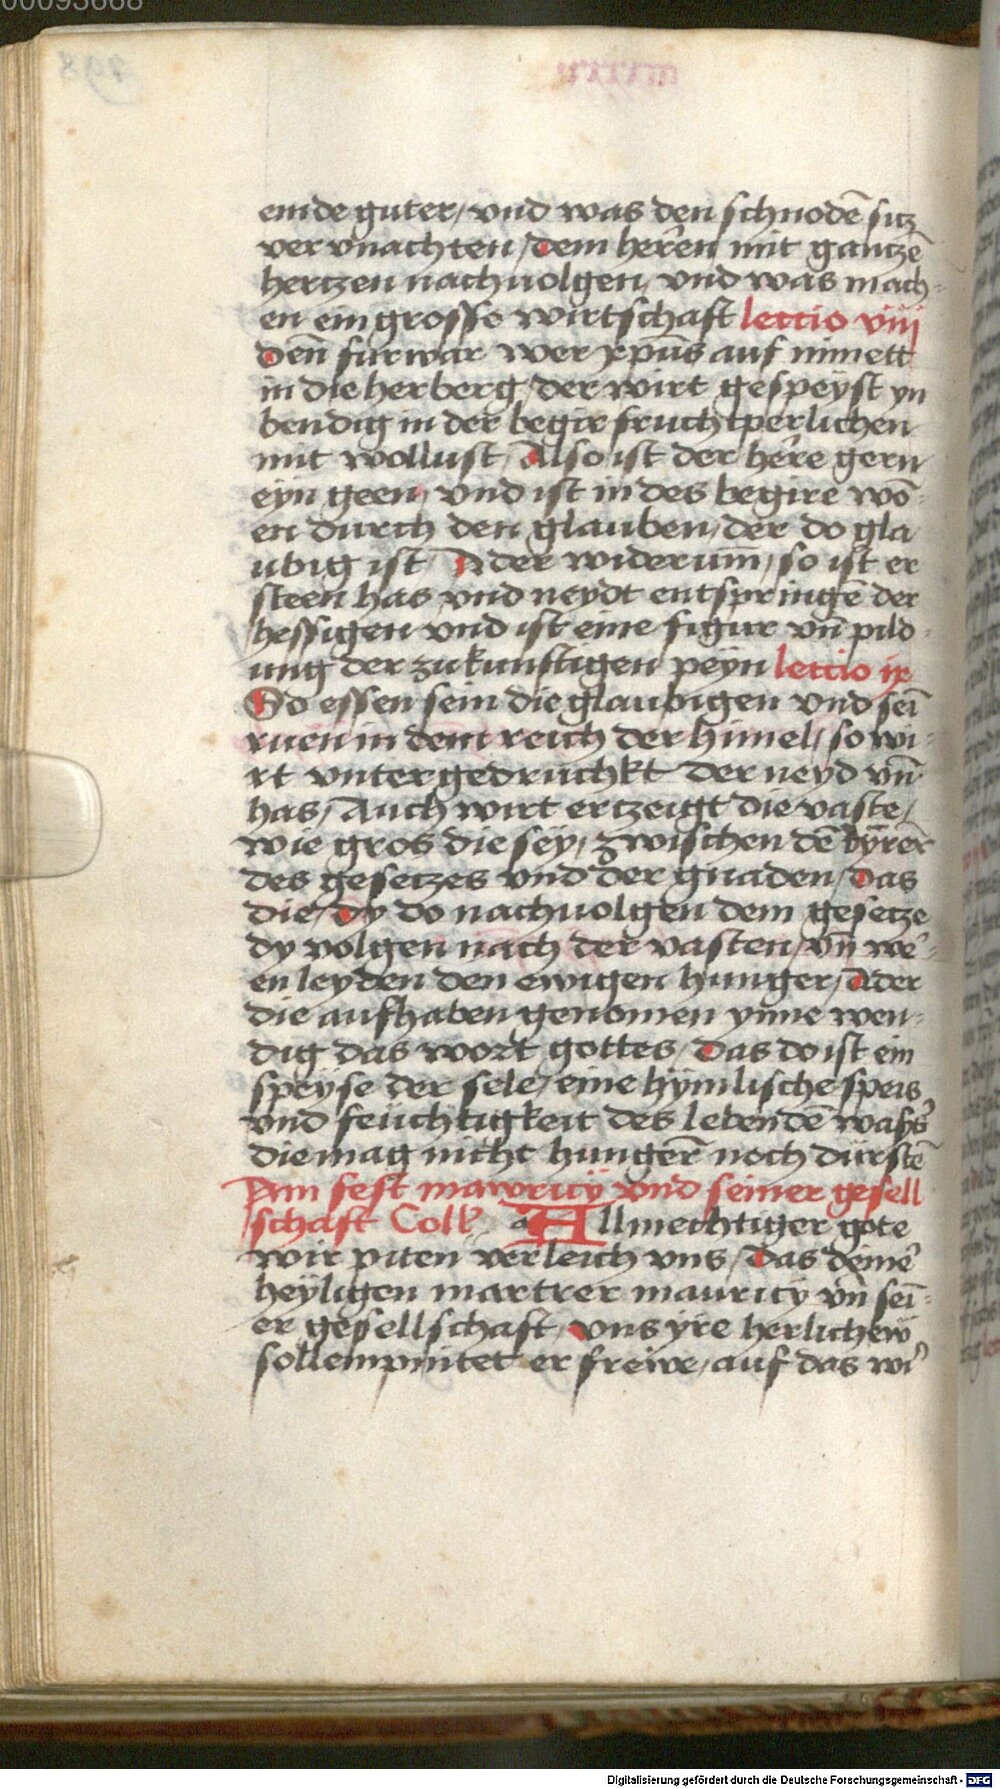 00093668
emde guter/ vnd was den schnodē sitz
ver vnachten/ dem heren mit gantzē
hertzen nachuolgen/ vnd was mach-
en ein grosse wirtschaft lectio viij
Den furwar wer xp̄us auf nimett
in die herberg/ der wirt gespeyst yn
bendig in der begir fruchtperlichen
mit wollust/ Also ist der here gern
eyn geen/ vnd ist in des begire wō-
en durch den glauben/ der do gla
ubig ist Ader widerum̄/ so ist er
steen has vnd neydt entspringē der
hessigen vnd ist eine figur vn̄ pild-
ung der zukunftigen peyn lectio ix
So essen sein die glaubigen vnd sei̅
ruen in dem reich der himel/ so wi-
rt vntergedruchkt der neyd vn̄
has/ Auch wirt ertzeigt die vaste/
wie gros die sey/ zwischen dē
des gesetzes vnd der gnaden/ Das
die/ Dy do nachuolgen dem gesetze
dy volgen nach der vasten/ vn̄ we-
en leyden den ewigen hunger/ Ader
die aufhaben genomen ynne wen-
dig das wort gottes/ Das do ist ein
speyse der sele/ eine hymlische speis
vnd feuchtigkeit des lebendē wass
die mag nicht hungern̄ noch durstē
Am fest mauricy vnd seiner gesell
schaft Coll' a Allmechtiger gote
wir piten verleich vns/ Das deine
heyligen martrer mauricy vn̄ sei̅-
er gesellschaft/ vns yre herlichew
sollempnitet er frewe/ auf das wi
Digitalisierung gefördert durch die Deutsche Forschungsgemeinschaft - DFG